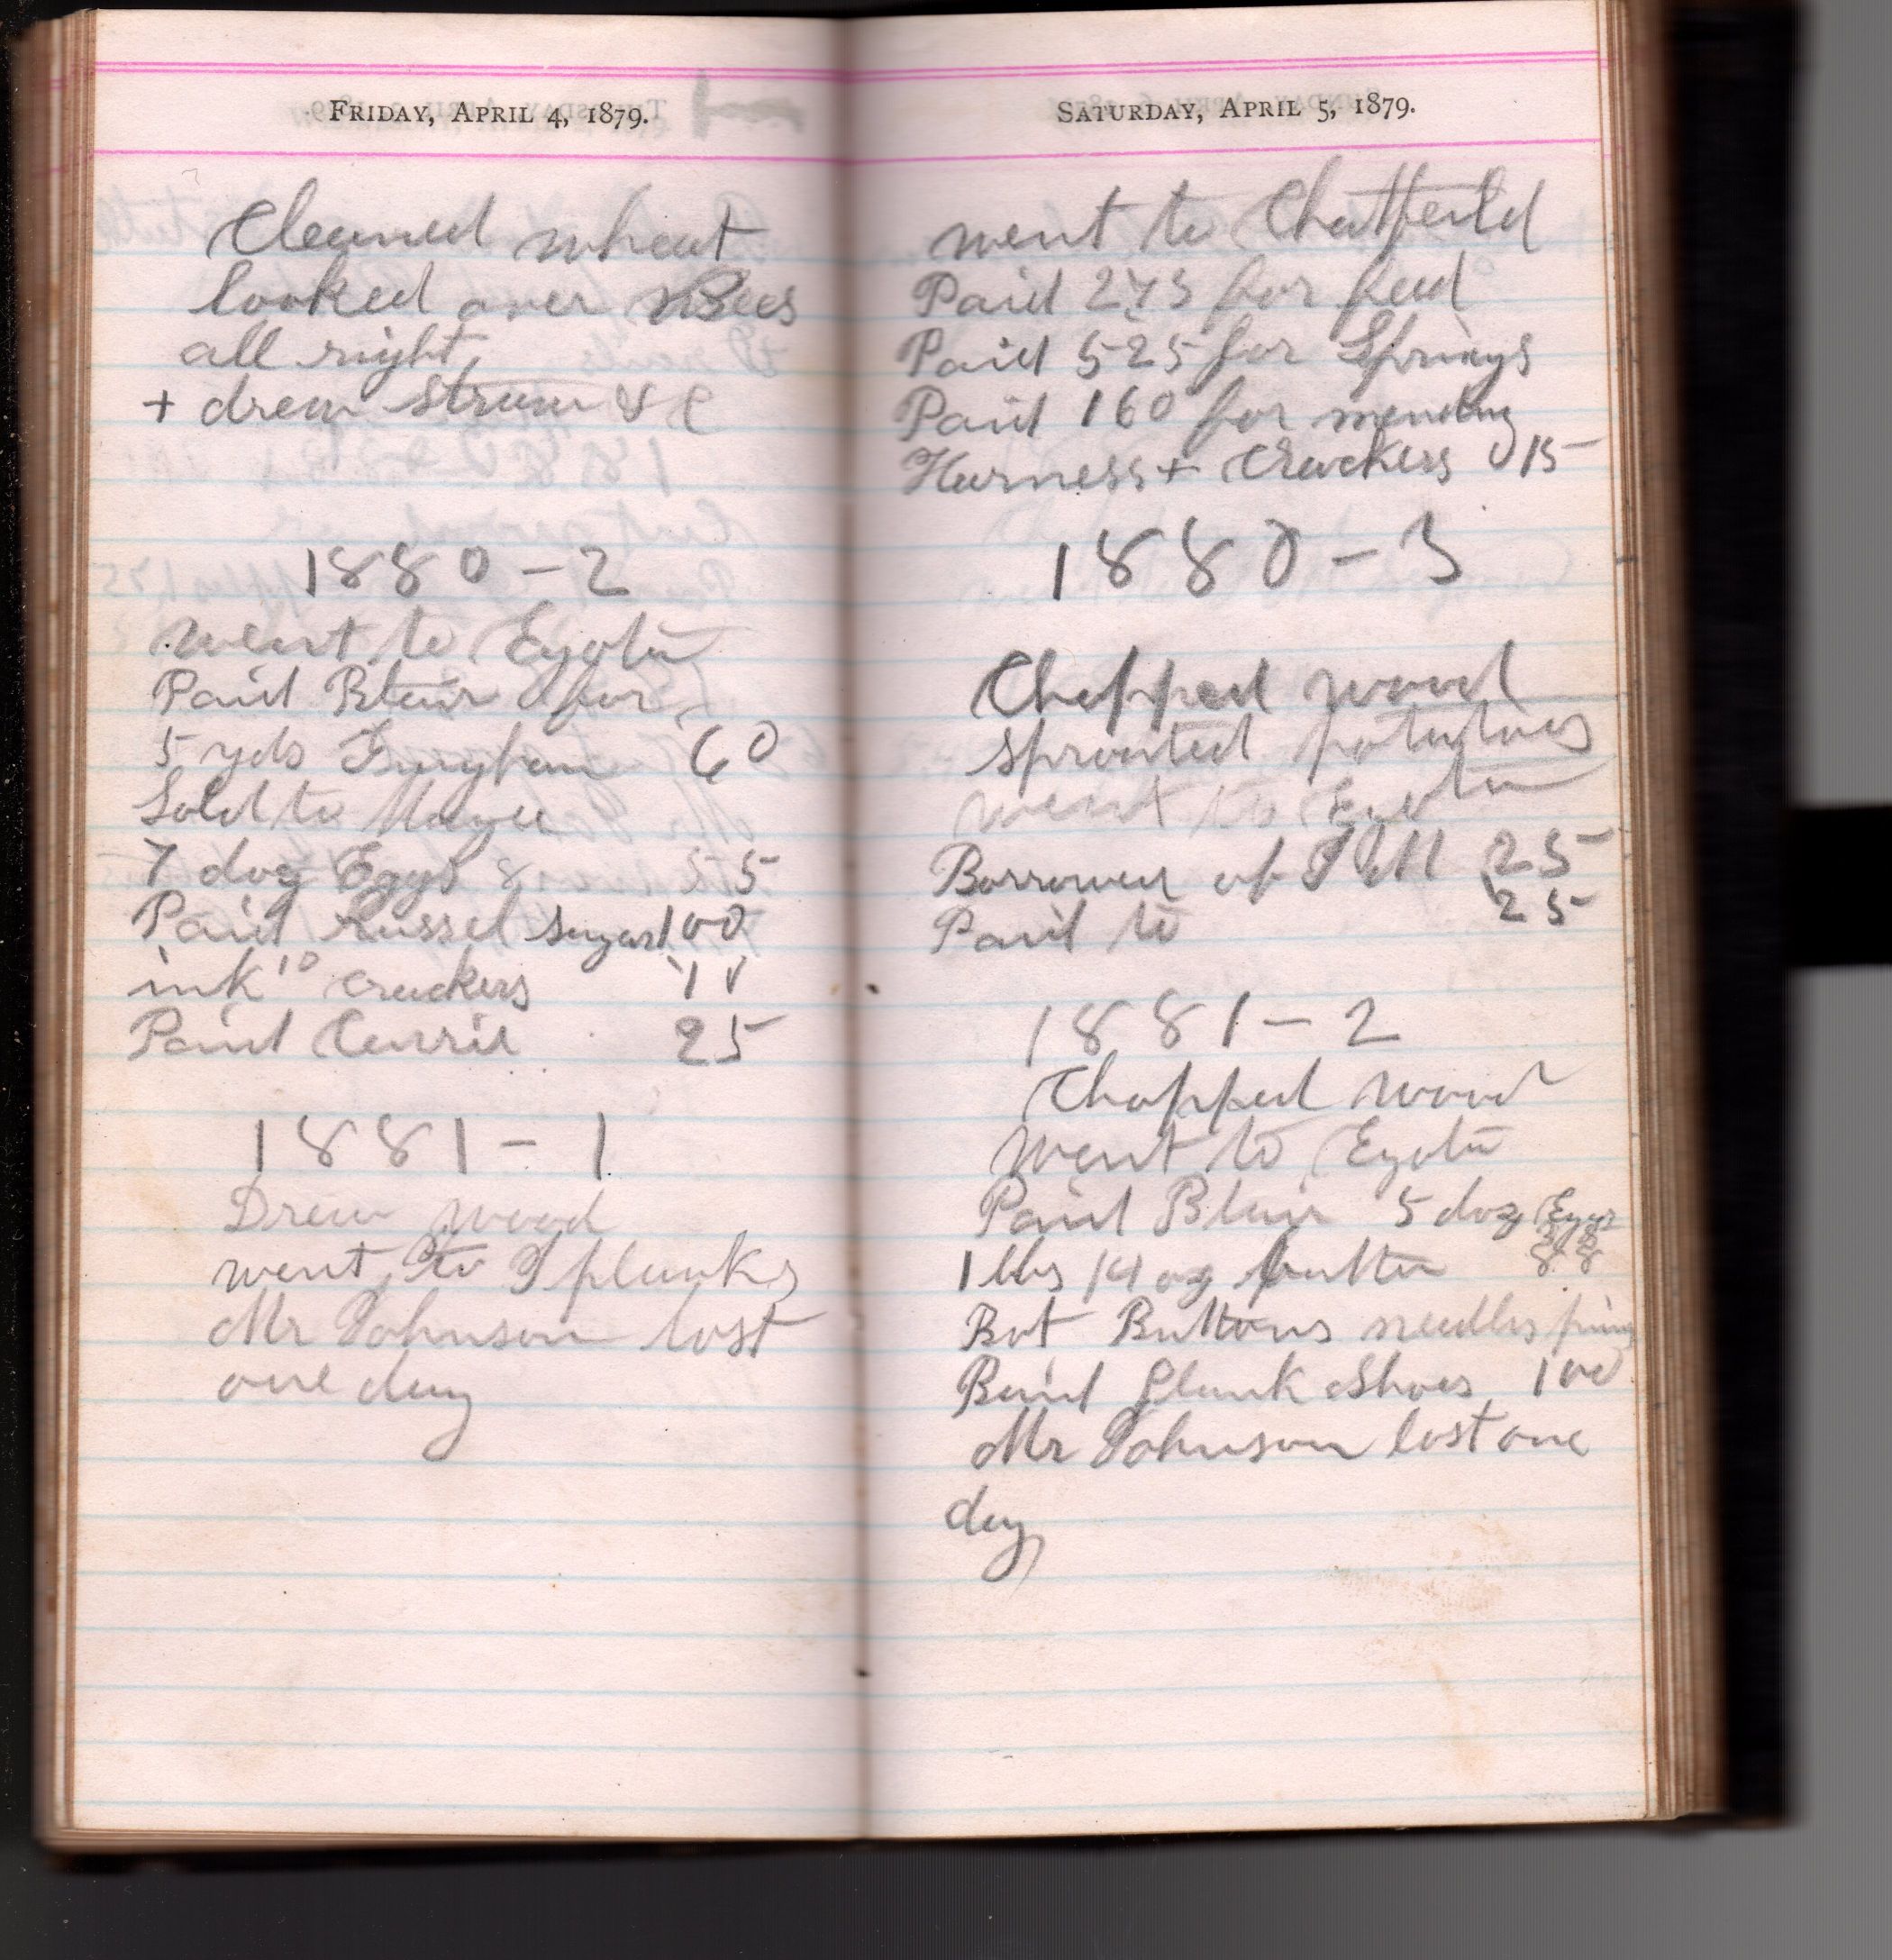 FRIDAY, APRIL 4, 1879.
Cleaned wheat
looked over Bees
all right
+ drew straw & C
1880 - 2
went to Eyota
Paid Blair for
5 yds Gingham 60
Sold to Magee
7 doz Eggs 8 55
Paid russel sugar 100
ink 10 crackers
Paid Currie 25
1881 - 1
Drew wood
went to J planks
Mr Johnson lost
one day
SATURDAY, APRIL 5, 1879.
went to Chatfeild
Paid 275 for feed
Paid 525 for Springs
Paid 160 for mending
Harness + Crackers 15
1880 - 3
Chopped wood
sprouted potatoes
went to Eyota
Borrowed of 25
Paid to 25
1881 - 2
Chopped wood
went to Eyota
Paid Blair 5 doz Eggs
1 lbs 14 oz butter
Bot Buttons needles pins
Paid Plank Shoes 100
Mr Johnson lost one
day